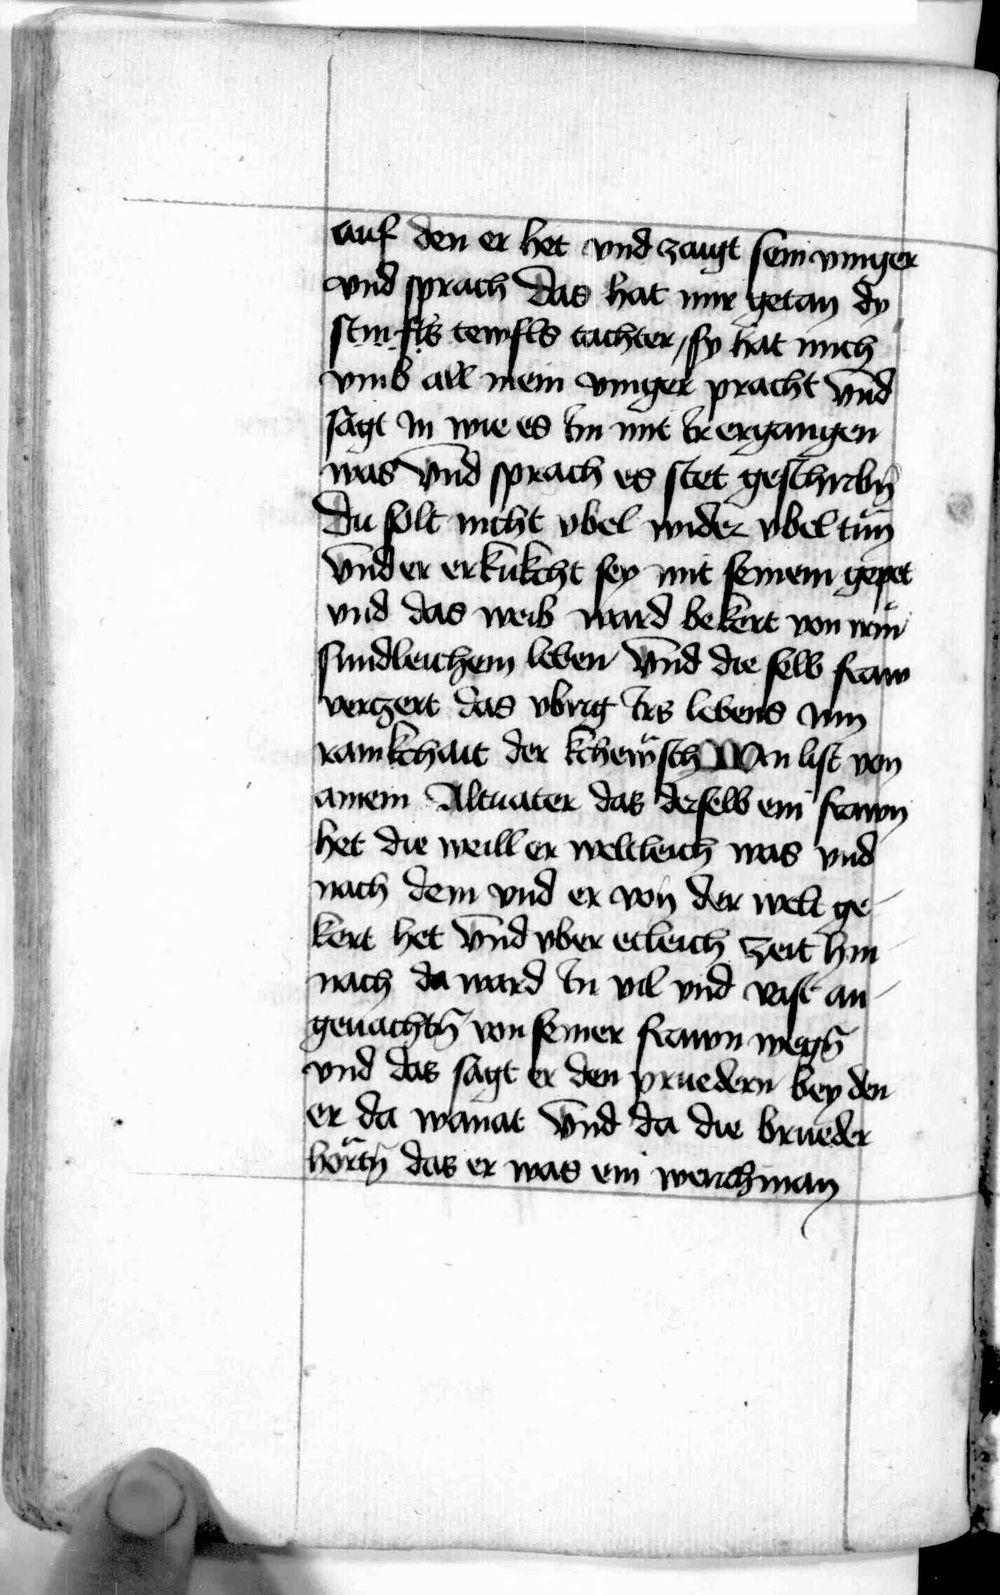 auf den er het vnd zaigt sein vinger
vnd sprach Das hat mir getan dy
tewfls tachter / sy hat mich
vmb all mein vinger pracht Vnd
sagt in wie es im mit ir ergangen
was Vnd sprach es stet geschribn̄
Du solt nicht vbel wider vbel tůn
Vnd er erkukcht sey mit seinem gepet
vnd das weib ward bekert von irm̊
sundleichem leben Vnd die selb fraw
verczert das vbrig irs lebens inn
rainkchait der kchewsch Man list von
ainem Altuater das derselb ein frawn
het die weill er weltleich was vnd
nach dem vnd er von der welt ge-
kert het Vnd vber etleich zeit hin
nach da ward in vil vnd vast an-
geuachtn̄ von seiner frawn wegn̄
vnd das sagt er den pruedern bey den
er da wanat Vnd da die brueder
hörtn̄ das er was ein werichman